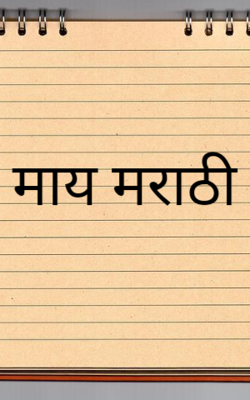 माय मराठी